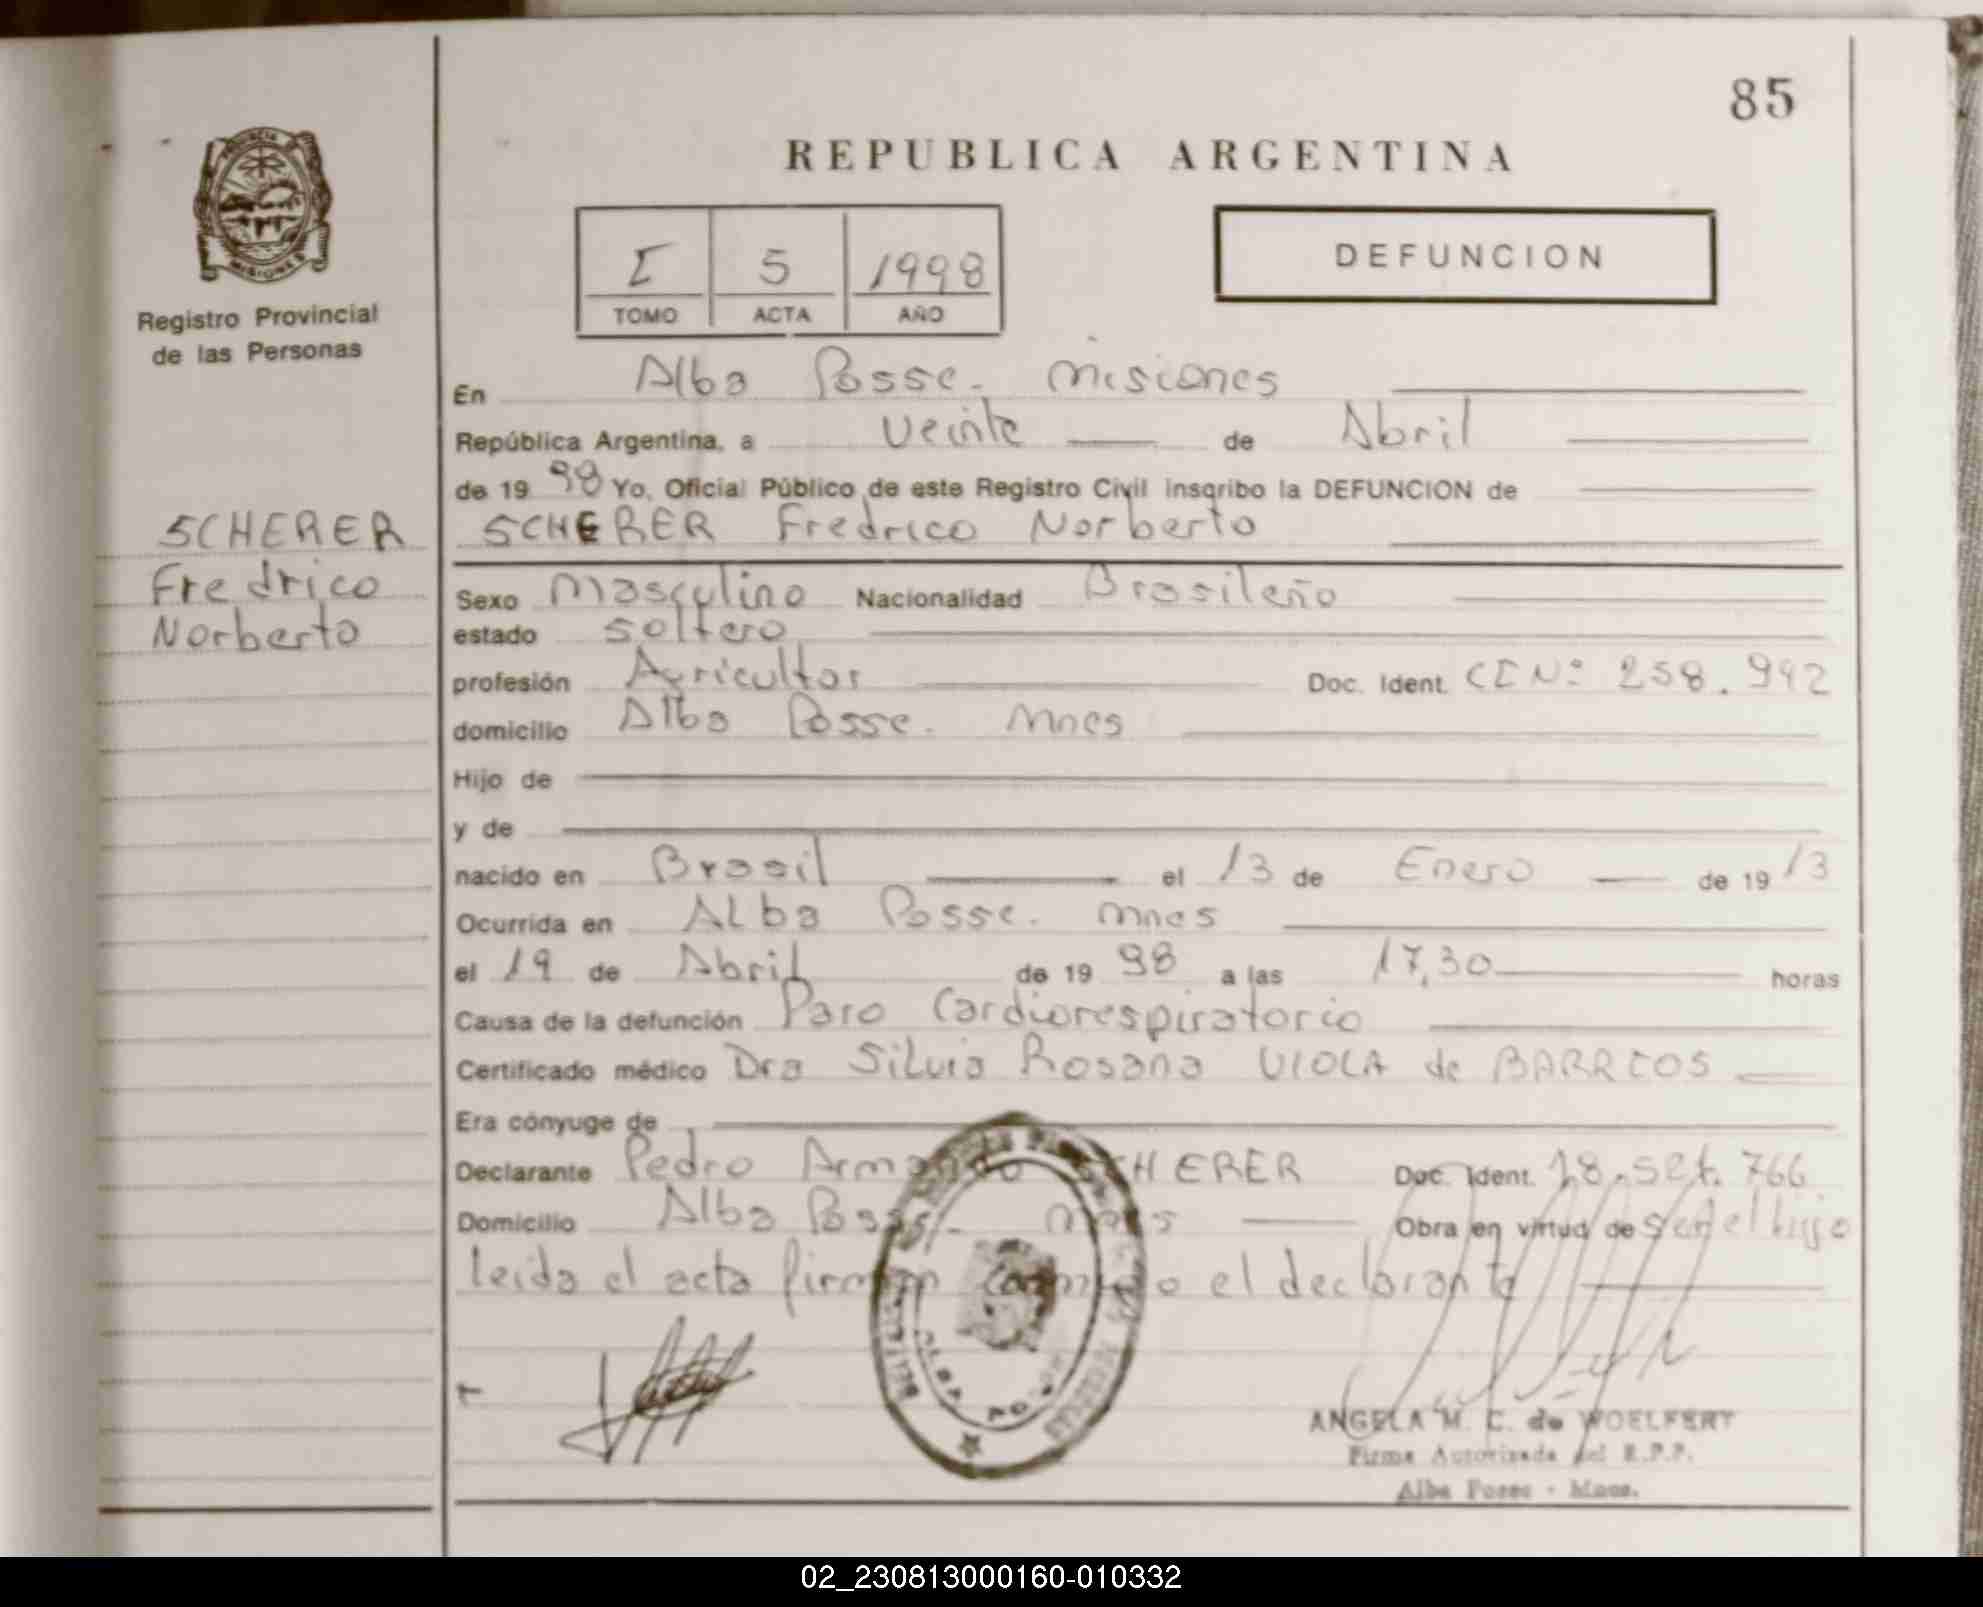 85
REPUBLICA ARGENTINA
PROVINCIA
MISIONES
Registro Provincial
de las Personas
I 5 1998
TOMO ACTA AÑO
DEFUNCION
En Alba Posse. Misiones
República Argentina, a Veinte de Abril
de 19 98 Yo, Oficial Público de este Registro Civil inscribo la DEFUNCION de
SCHERER Fredrico Norberto
SCHERER
Fredrico
Norberto
Sexo Masculino Nacionalidad Brasileño
estado Soltero
profesión Agricultor Doc. Ident. CI Nº 258.942
domicilio Alba Posse. Mnes
Hijo de
y de
nacido en Brasil el 13 de Enero de 19 13
Ocurrida en Alba Posse. Mnes
el 19 de Abril de 19 98 a las 17,30 horas
Causa de la defunción Paro Cardiorespiratorio
Certificado médico Dra Silvia Rosana VIOLA de BARRIOS
Era cónyuge de
Declarante Pedro Armando SCHERER Doc. Ident. 766
Domicilio Alba Posse. Mnes Obra en virtud de Ser el hijo
leida el acta firman conmigo el declarante
ANGELA M. C. de WOELFERT
Firma Autorizada del R.P.P.
Alba Posse - Mnes.
02_230813000160-010332